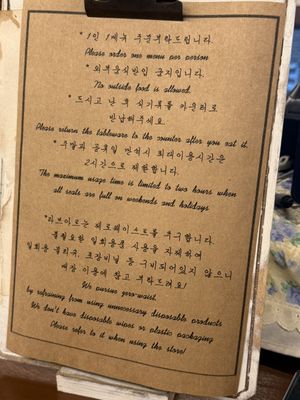 * 1인 1메뉴 주문부탁드립니다.
Please order one menu per person
* 외부음식반입 금지입니다.
No outside food is allowed.
* 드시고 난 후 식기류를 카운터로
반납해주세요.
Please return the tableware to the counter after you eat it.
* 주말과 공휴일 만석시 최대이용시간은
2시간으로 제한합니다.
The maximum usage time is limited to two hours when
all seats are full on weekends and holidays.
*라보이르는 제로웨이스트를 추구합니다.
불필요한 일회용품 사용을 자제하여
일회용 물티슈, 포장비닐 등 구비되어있지 않으니
매장 이용에 참고 부탁드려요!
We pursue zero-waste.
by refraining from using unnecessary disposable products
We don't have disposable wipes or plastic packaging
Please refer to it when using the store!